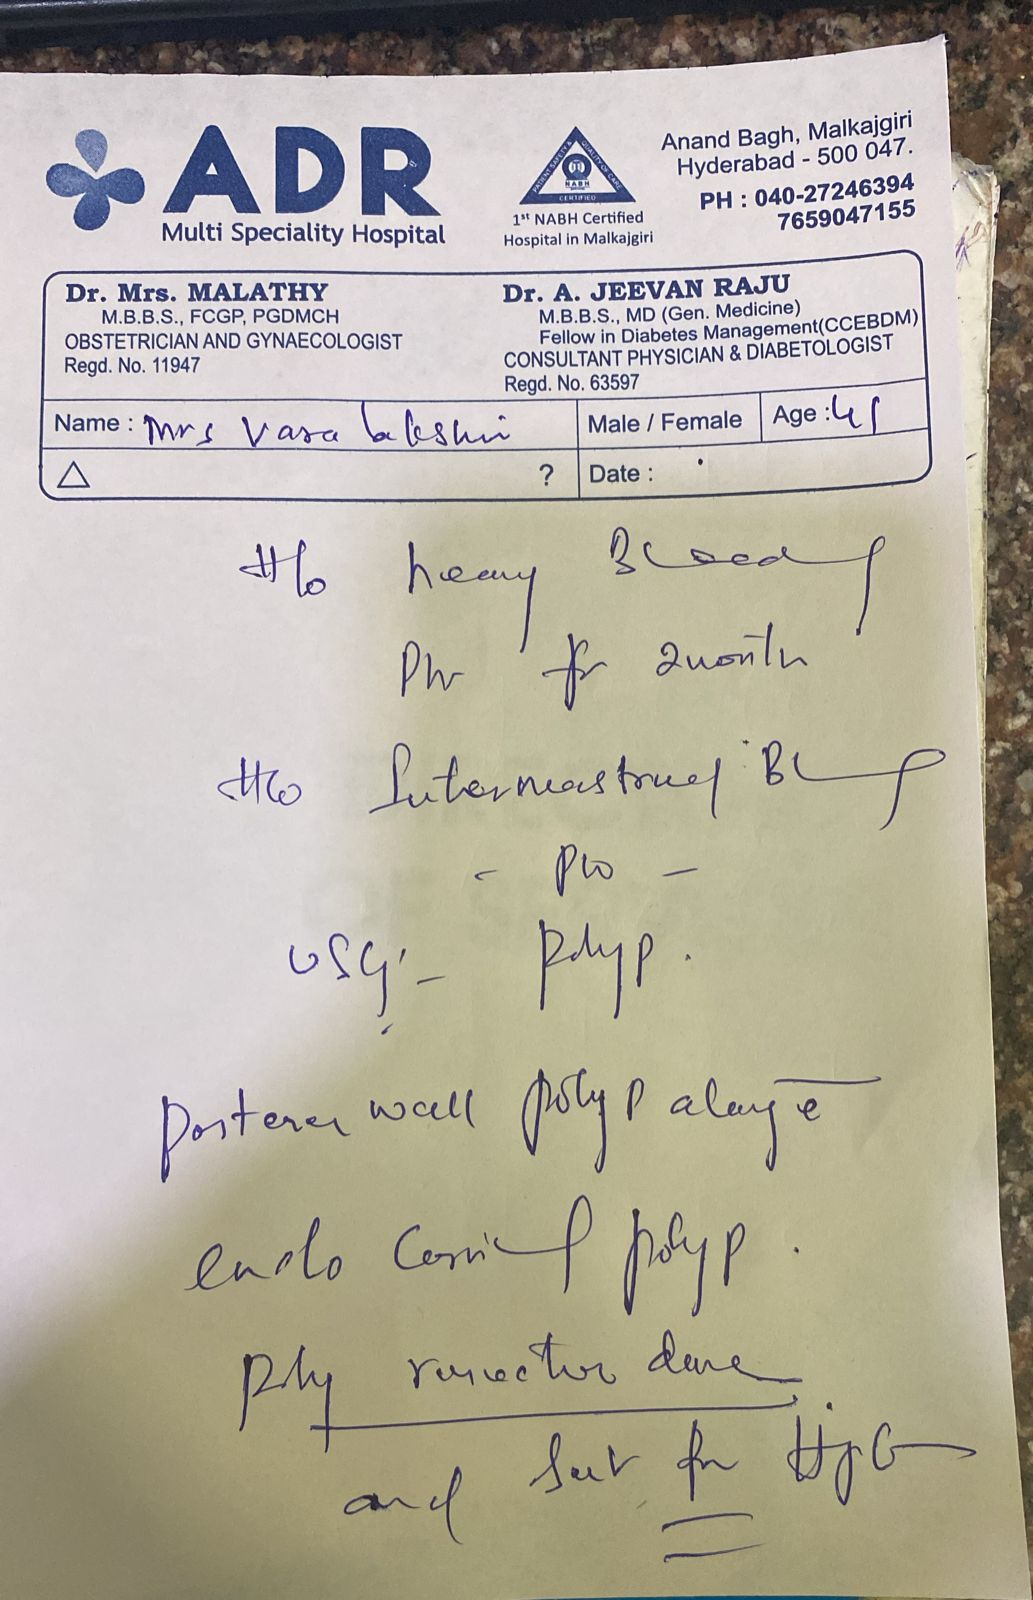 ADR
Multi Speciality Hospital
PATIENT SAFETY & QUALITY OF CARE
NABH
CERTIFIED
1st NABH Certified
Hospital in Malkajgiri
Anand Bagh, Malkajgiri
Hyderabad - 500 047.
PH : 040-27246394
7659047155
Dr. Mrs. MALATHY
M.B.B.S., FCGP, PGDMCH
OBSTETRICIAN AND GYNAECOLOGIST
Regd. No. 11947
Dr. A. JEEVAN RAJU
M.B.B.S., MD (Gen. Medicine)
Fellow in Diabetes Management(CCEBDM)
CONSULTANT PHYSICIAN & DIABETOLOGIST
Regd. No. 63597
Name : Mrs Vara lakshmi Male / Female Age :
△ ? Date :
H/o heavy Bleeding
P/v for 2 month
H/o Intermenstrual
- P/v -
USG - Polyp.
Posterior wall polyp along c
endo Cervical polyp.
Poly resection done
and sent for